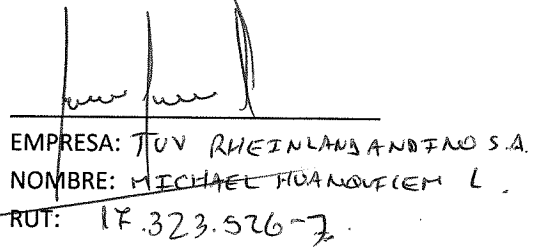 EMPRESA: TUV RHEINLAND ANDINO S.A.
NOMBRE: MICHAEL L.
RUT: 17.323.526-7